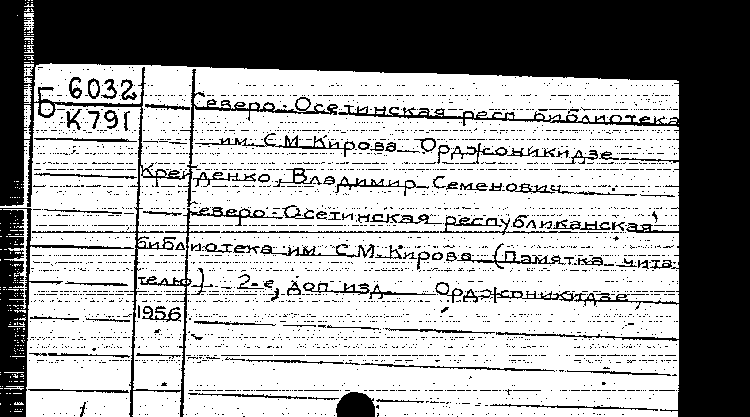 Б 6032
К791
Северо-Осетинская респ библиотека
им. С.М.Кирова Орджоникидзе
Крейденко, Владимир Семенович
Северо-Осетинская республиканская
библиотека им. С.М.Кирова (Памятка чита
телю). 2-е, доп изд. Орджоникидзе,
1956